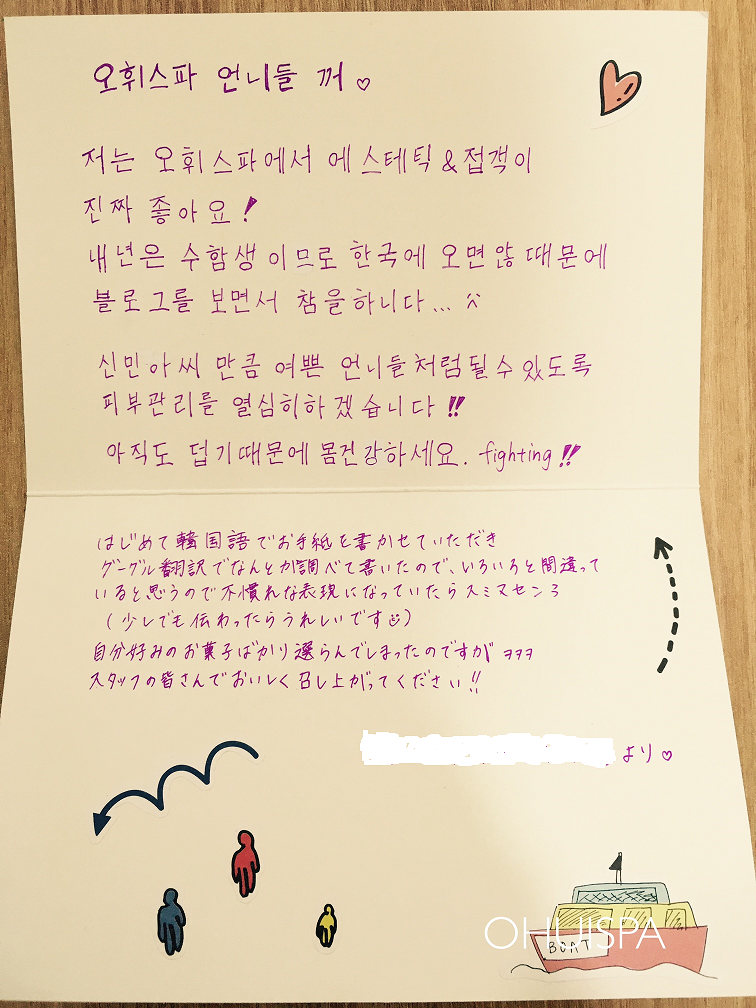 오휘스파 언니들 께♡
저는 오휘스파에서 에스테틱&접객이
진짜 좋아요!
내년은 수험생 이므로 한국에 오면않 때문에
블로그를 보면서 참을하니다...
신민아씨 만큼 여쁜 언니들처럼될수있도록
피부관리를 열심히하겠습니다!!
아직도 덥기때문에 몸건강하세요. fighting!!
はじめて韓国語でお手紙を書かせていただき
グーグル翻訳でなんとか調べて書いたので、いろいろと間違って
いると思うので不慣れな表現になっていたらスミマセン
(少しでも伝わったらうれしいです)
自分好みのお菓子ばかり選らんでしまったのですが ヨヨヨ
スタッフの皆さんでおいしく召し上がってください!!
より♡
BOAT
OHUISPA